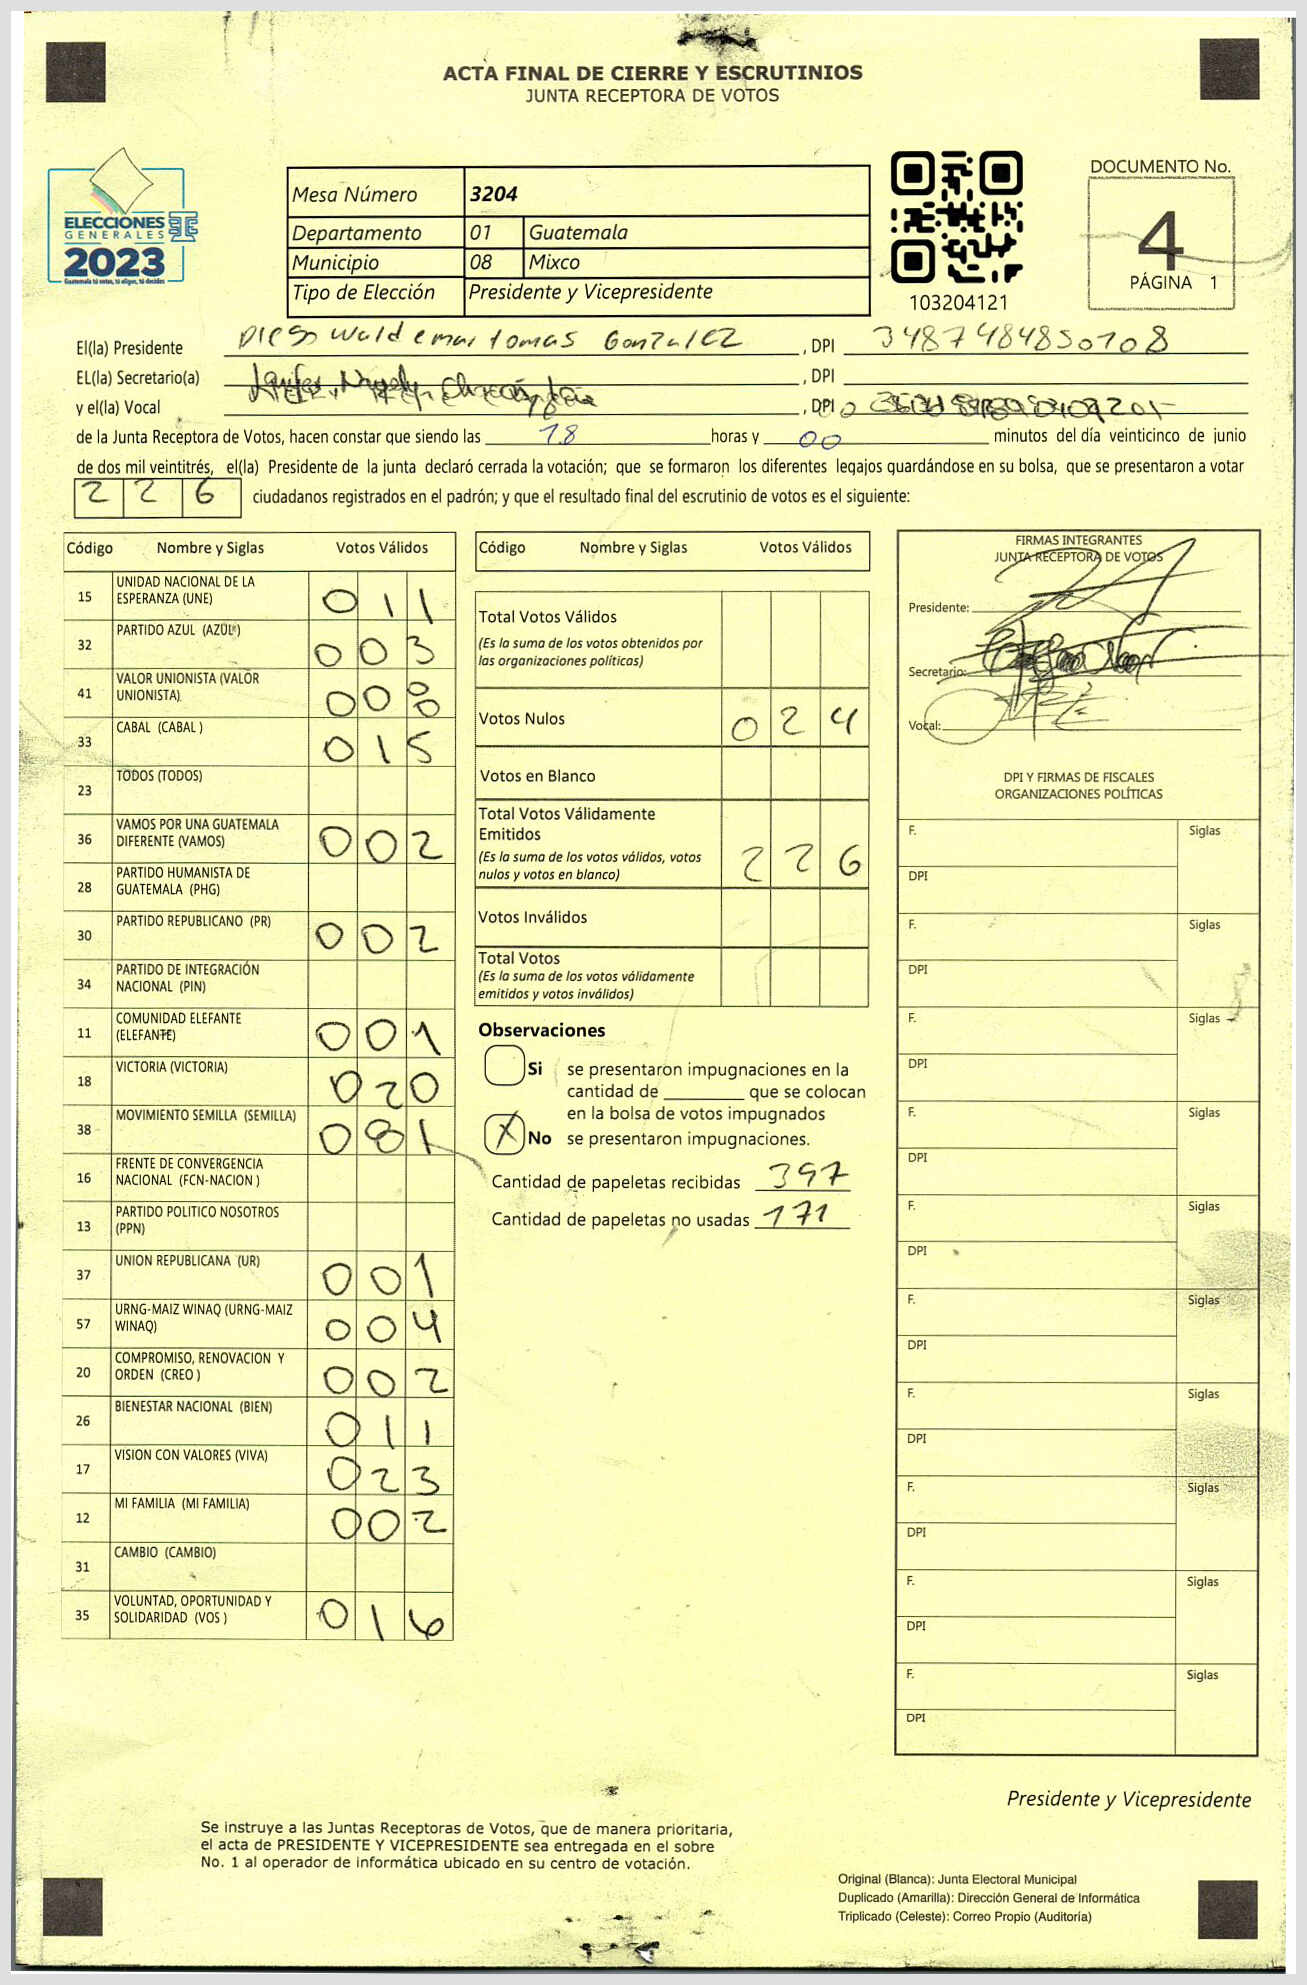 ACTA FINAL DE CIERRE Y ESCRUTINIOS
JUNTA RECEPTORA DE VOTOS
ELECCIONES
GENERALES
2023
Guatemala tú votas, tú eliges, tú decides
Mesa Número 3204
Departamento 01 Guatemala
Municipio 08 Mixco
Tipo de Elección Presidente y Vicepresidente
103204121
DOCUMENTO No.
4
PÁGINA 1
El(la) Presidente Diego Waldemar tomas Gonzalez , DPI 3487484850108
EL(la) Secretario(a) , DPI
y el(la) Vocal , DPI
de la Junta Receptora de Votos, hacen constar que siendo las 18 horas y 00 minutos del día veinticinco de junio
de dos mil veintitrés, el(la) Presidente de la junta declaró cerrada la votación; que se formaron los diferentes legajos guardándose en su bolsa, que se presentaron a votar
226 ciudadanos registrados en el padrón; y que el resultado final del escrutinio de votos es el siguiente:
Código Nombre y Siglas Votos Válidos
15 UNIDAD NACIONAL DE LA ESPERANZA (UNE) 011
32 PARTIDO AZUL (AZUL) 003
41 VALOR UNIONISTA (VALOR UNIONISTA) 008
33 CABAL (CABAL ) 015
23 TODOS (TODOS)
36 VAMOS POR UNA GUATEMALA DIFERENTE (VAMOS) 002
28 PARTIDO HUMANISTA DE GUATEMALA (PHG)
30 PARTIDO REPUBLICANO (PR) 002
34 PARTIDO DE INTEGRACIÓN NACIONAL (PIN)
11 COMUNIDAD ELEFANTE (ELEFANTE) 001
18 VICTORIA (VICTORIA) 020
38 MOVIMIENTO SEMILLA (SEMILLA) 081
16 FRENTE DE CONVERGENCIA NACIONAL (FCN-NACION )
13 PARTIDO POLITICO NOSOTROS (PPN)
37 UNION REPUBLICANA (UR) 001
57 URNG-MAIZ WINAQ (URNG-MAIZ WINAQ) 004
20 COMPROMISO, RENOVACION Y ORDEN (CREO ) 002
26 BIENESTAR NACIONAL (BIEN) 011
17 VISION CON VALORES (VIVA) 023
12 MI FAMILIA (MI FAMILIA) 002
31 CAMBIO (CAMBIO)
35 VOLUNTAD, OPORTUNIDAD Y SOLIDARIDAD (VOS ) 016
Código Nombre y Siglas Votos Válidos
Total Votos Válidos
(Es la suma de los votos obtenidos por
las organizaciones políticas)
Votos Nulos 024
Votos en Blanco
Total Votos Válidamente
Emitidos
(Es la suma de los votos válidos, votos
nulos y votos en blanco) 226
Votos Inválidos
Total Votos
(Es la suma de los votos válidamente
emitidos y votos inválidos)
Observaciones
Si se presentaron impugnaciones en la
cantidad de ________ que se colocan
en la bolsa de votos impugnados
X No se presentaron impugnaciones.
Cantidad de papeletas recibidas 397
Cantidad de papeletas no usadas 171
FIRMAS INTEGRANTES
JUNTA RECEPTORA DE VOTOS
Presidente:
Secretario:
Vocal:
DPI Y FIRMAS DE FISCALES
ORGANIZACIONES POLÍTICAS
F. Siglas
DPI
F. Siglas
DPI
F. Siglas
DPI
F. Siglas
DPI
F. Siglas
DPI
F. Siglas
DPI
F. Siglas
DPI
F. Siglas
DPI
F. Siglas
DPI
F. Siglas
DPI
Presidente y Vicepresidente
Se instruye a las Juntas Receptoras de Votos, que de manera prioritaria,
el acta de PRESIDENTE Y VICEPRESIDENTE sea entregada en el sobre
No. 1 al operador de informática ubicado en su centro de votación.
Original (Blanca): Junta Electoral Municipal
Duplicado (Amarilla): Dirección General de Informática
Triplicado (Celeste): Correo Propio (Auditoría)